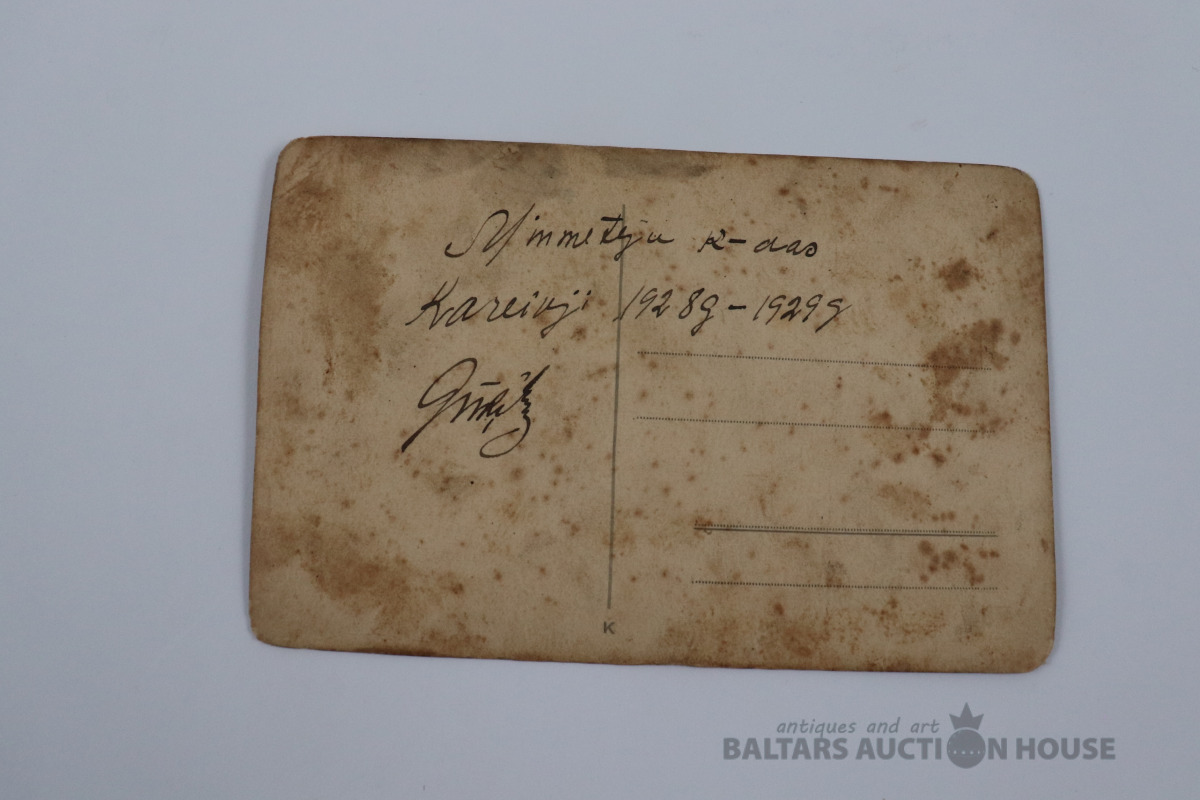 Minmetēju k-das
Kareivji 1928g-1929g
K
antiques and art
BALTARS AUCTION HOUSE